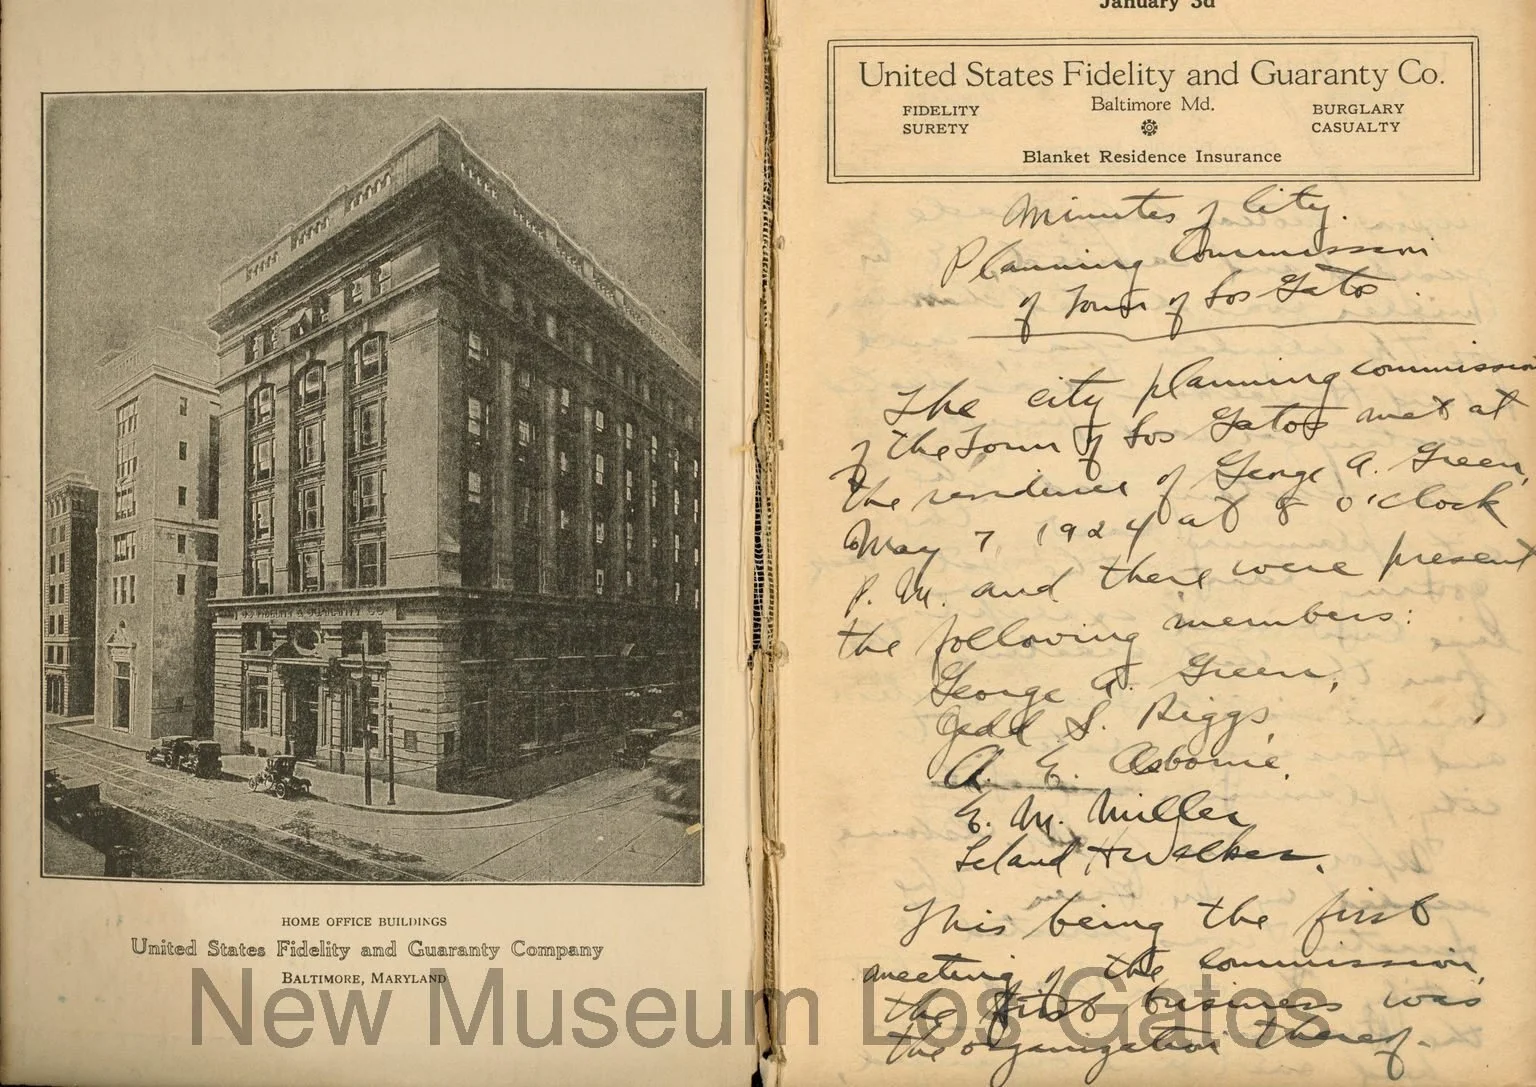 HOME OFFICE BUILDINGS
United States Fidelity and Guaranty Company
BALTIMORE, MARYLAND
January 3d
United States Fidelity and Guaranty Co.
FIDELITY Baltimore Md. BURGLARY
SURETY CASUALTY
Blanket Residence Insurance
Minutes of City
Planning Commission
of Town of Los Gatos
The city planning commission
of the Town of Los Gatos met at
the residence of George A. Green,
May 7, 1924 at 8 o'clock
P. M. and there were present
the following members:
George A. Green,
S. Riggs,
A. E. Osborne.
E. M. Miller
Leland H Walker.
This being the first
meeting of the commission,
the first business was
the organization thereof.
New Museum Los Gatos